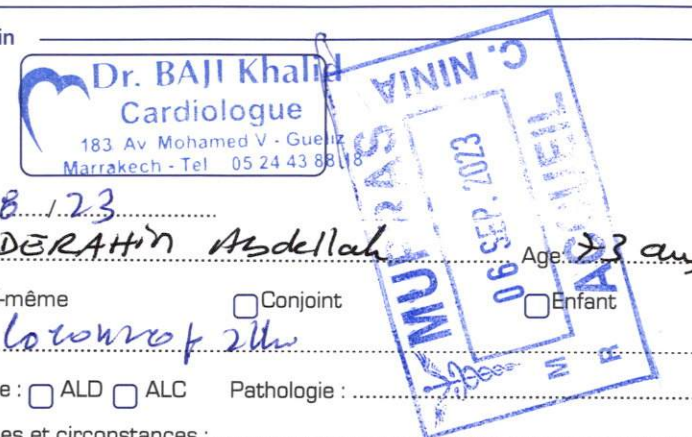 in
Dr. BAJI Khalid
Cardiologue
183 Av Mohamed V - Gueliz
Marrakech - Tel 05 24 43 88 18
MUPRAS
C. NINIA
06 SEP. 2023
ACCUEIL
M R
8 / 23
DERAHIM Abdellah Age 73 ans
-même Conjoint Enfant
e : ALD ALC Pathologie :
es et circonstances :